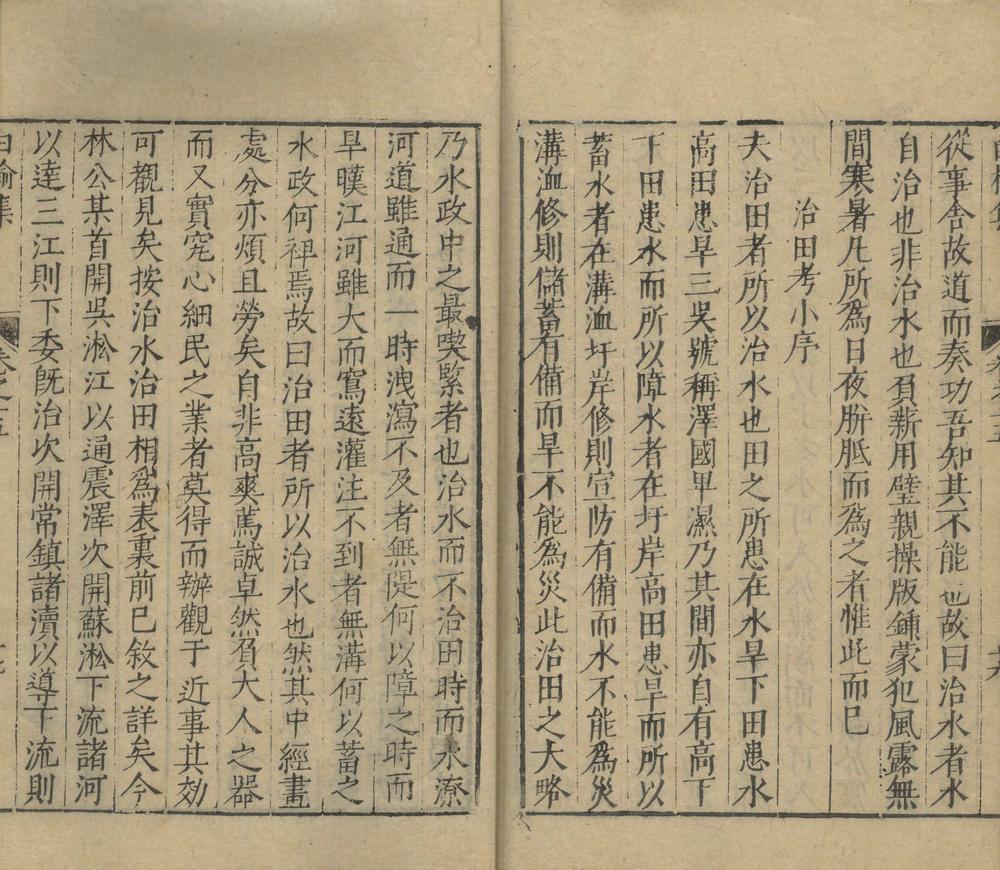 從事舍故道而奏功吾知其不能也故曰治水者水
自治也非治水也負薪用璧親操版鍤蒙犯風露無
間寒暑凡所為日夜胼胝而為之者惟此而已
治田考小序
夫治田者所以治水也田之所患在水旱下田患水
高田患旱三吳號稱澤國卑濕乃其間亦自有高下
下田患水而所以障水者在圩岸高田患旱而所以
蓄水者在溝洫圩岸修則宣防有備而水不能為災
溝洫修則儲蓄有備而旱不能為災此治田之大略
乃水政中之最喫緊者也治水而不治田時而水潦
河道雖通而一時洩瀉不及者無隄何以障之時而
旱暵江河雖大而寫遠灌注不到者無溝何以蓄之
水政何裨焉故曰治田者所以治水也然其中經畫
處分亦煩且勞矣自非高爽篤誠卓然負大人之器
而又實究心細民之業者莫得而辦觀于近事其効
可覩見矣按治水治田相為表裏前已敘之詳矣今
林公某首開吳淞江以通震澤次開蘇淞下流諸河
以達三江則下委既治次開常鎮諸瀆以導下流則
白榆集
卷之十五